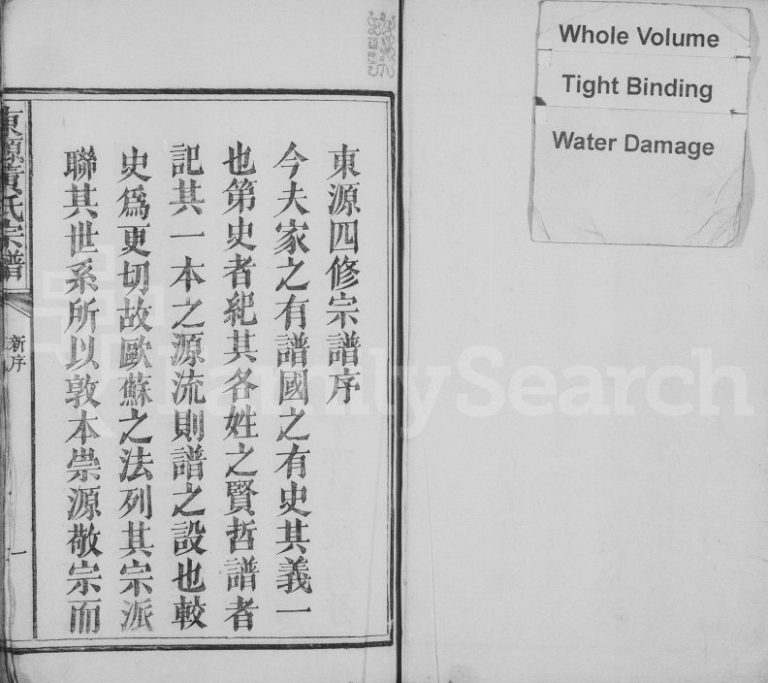 Whole Volume
Tight Binding
Water Damage
東源四修宗譜序
今夫家之有譜國之有史其義一
也第史者紀其各姓之賢哲譜者
記其一本之源流則譜之設也較
史爲更切故歐蘇之法列其宗派
聯其世系所以敦本崇源敬宗而
東源黃氏宗譜
新序
一
FamilySearch